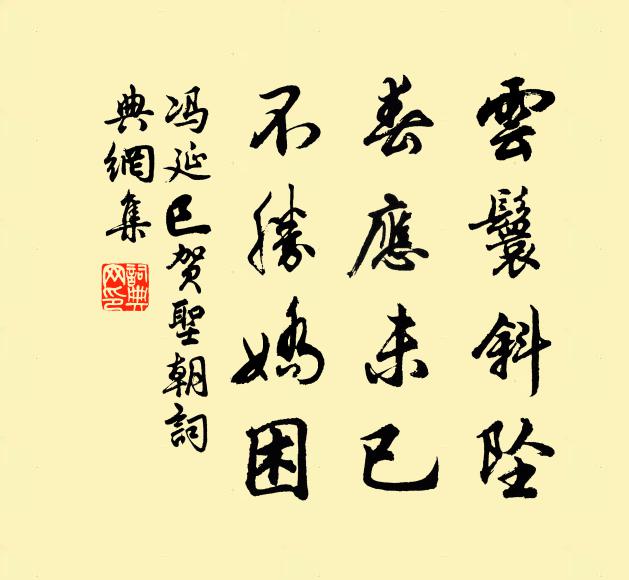 雲鬟斜坠
春應未已
不勝嬌困
冯延巳贺聖朝詞
典網集
詞典网印